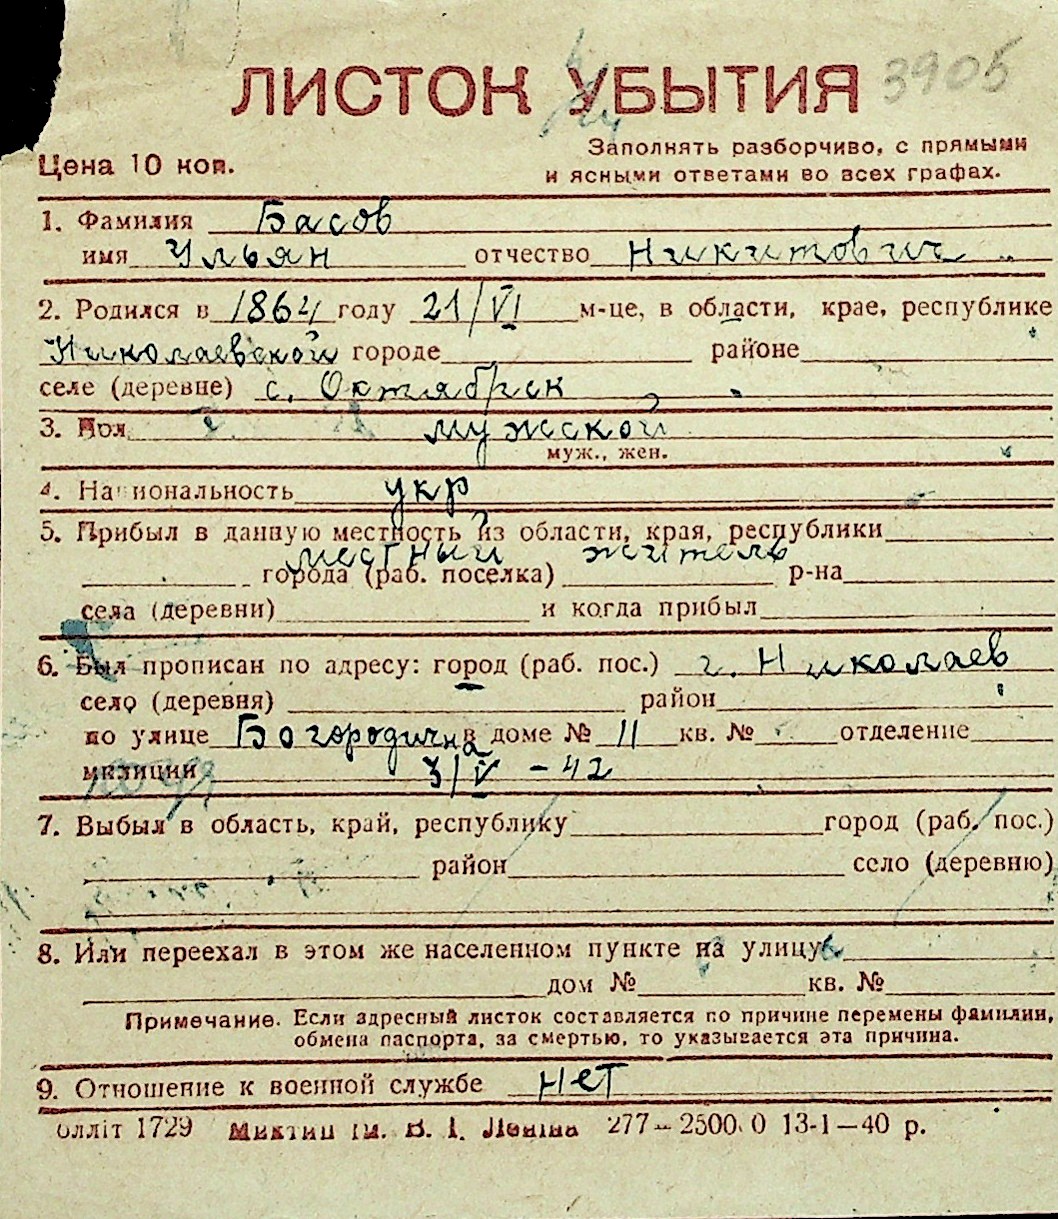 ЛИСТОК УБЫТИЯ 3905
Цена 10 коп.
Заполнять разборчиво, с прямыми
и ясными ответами во всех графах.
1. Фамилия Басов
имя Ульян отчество Никитович
2. Родился в 1864 году 21/VI м-це, в области, крае, республике
Николаевской городе районе
селе (деревне) с. Октябрск
3. Пол мужской
муж., жен.
4. Национальность укр
5. Прибыл в данную местность из области, края, республики
местный житель
города (раб. поселка) р-на
села (деревни) и когда прибыл
6. Был прописан по адресу: город (раб. пос.) г. Николаев
село (деревня) район
по улице Богородична в доме № 11 кв. № отделение
милиции 3/V - 42
7. Выбыл в область, край, республику город (раб. пос.)
район село (деревню)
8. Или переехал в этом же населенном пункте на улицу
дом № кв. №
Примечание. Если адресный листок составляется по причине перемены фамилии,
обмена паспорта, за смертью, то указывается эта причина.
9. Отношение к военной службе нет
олліт 1729 ім. В. І. Леніна 277—2500.0 13-1—40 р.